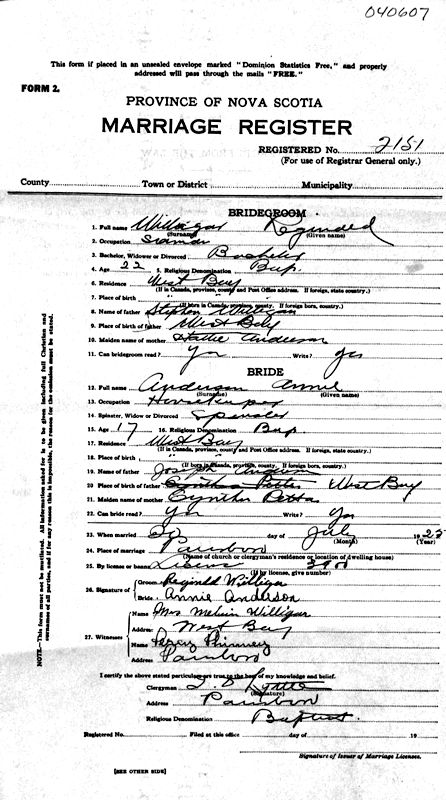 040607
This form if placed in an unsealed envelope marked "Dominion Statistics Free," and properly
addressed will pass through the mails "FREE."
FORM 2.
PROVINCE OF NOVA SCOTIA
MARRIAGE REGISTER
REGISTERED No. 2151
(For use of Registrar General only.)
County Town or District Municipality
BRIDEGROOM
1. Full name Willigar Reginald
(Surname) (Given name)
2. Occupation Seaman
3. Bachelor, Widower or Divorced Bachelor
4. Age 22 5. Religious Denomination Bap.
6. Residence West Bay
(If in Canada, province, county and Post Office address. If foreign, state country.)
7. Place of birth " "
(If born in Canada, province, county. If foreign born, country.)
8. Name of father Stephen Willigar
9. Place of birth of father West Bay
10. Maiden name of mother Anderson
11. Can bridegroom read? Yes Write? Yes
BRIDE
12. Full name Anderson Annie
(Surname) (Given name)
13. Occupation Housekeeper
14. Spinster, Widow or Divorced Spinster
15. Age 17 16. Religious Denomination Bap
17. Residence West Bay
(If in Canada, province, county and Post Office address. If foreign, state country.)
18. Place of birth "
(If born in Canada, province, county. If foreign born, country.)
19. Name of father Joseph Anderson
20. Place of birth of father West Bay
21. Maiden name of mother Cynthia
22. Can bride read? Yes Write? Yes
23. When married day of July 1925
(Month)
24. Place of marriage Parrsboro
(Name of church or clergyman's residence or location of dwelling house)
25. By license or banns License
(If by license, give number)
26. Signature of Groom Reginald Willigar
Bride Annie Anderson
27. Witnesses Name Mrs Melvin Willigar
Address West Bay
Name Percy Phinney
Address Parrsboro
I certify the above stated particulars are true to the best of my knowledge and belief.
Clergyman
(Signature)
Address Parrsboro
Religious Denomination Baptist.
Registered No. Filed at this office day of 19
Signature of Issuer of Marriage Licenses.
[SEE OTHER SIDE]
NOTE—This form must not be mutilated. All information asked for is to be given including full Christian and
surnames of all parties, and if for any reason this cannot be done, the reason for the omission must be stated.